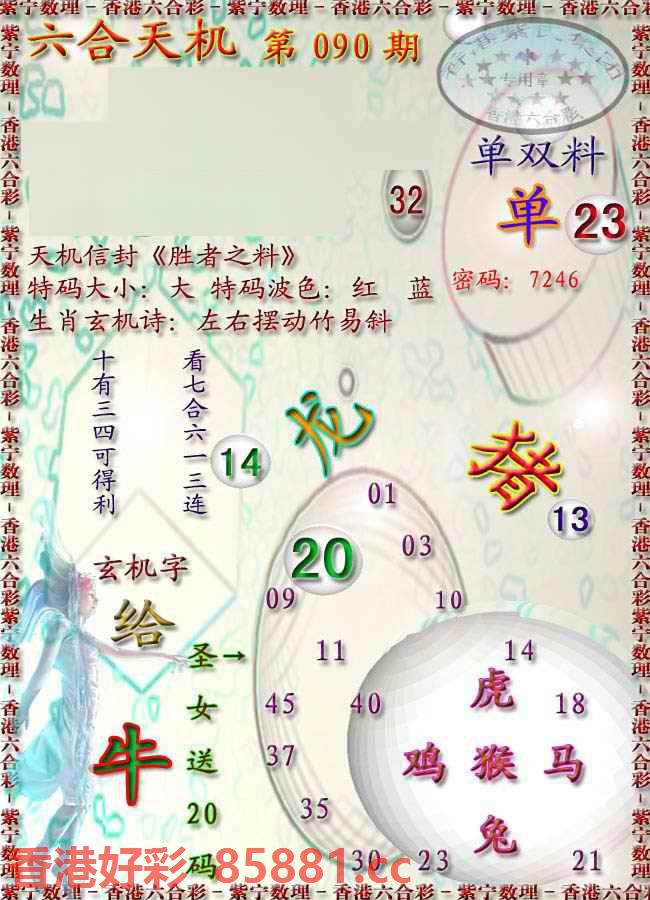 紫宁数理－香港六合彩－紫宁数理－香港六合彩－紫宁数理－香港六合彩－紫宁数理
六合天机 第 090 期
专用章
香港六合彩
单双料
单 23
32
天机信封《胜者之料》
特码大小：大 特码波色：红 蓝
密码：7246
生肖玄机诗：左右摆动竹易斜
看七合六一三连
十有三四可得利
14
龙
猪
13
01
20
03
玄机字
给
09
10
圣女送20码→
11
14
牛
45
40
虎
18
37
鸡 猴 马
35
兔
30
23
21
香港好彩 85881.cc
紫宁数理－香港六合彩－紫宁数理－香港六合彩－紫宁数理－香港六合彩－紫宁数理